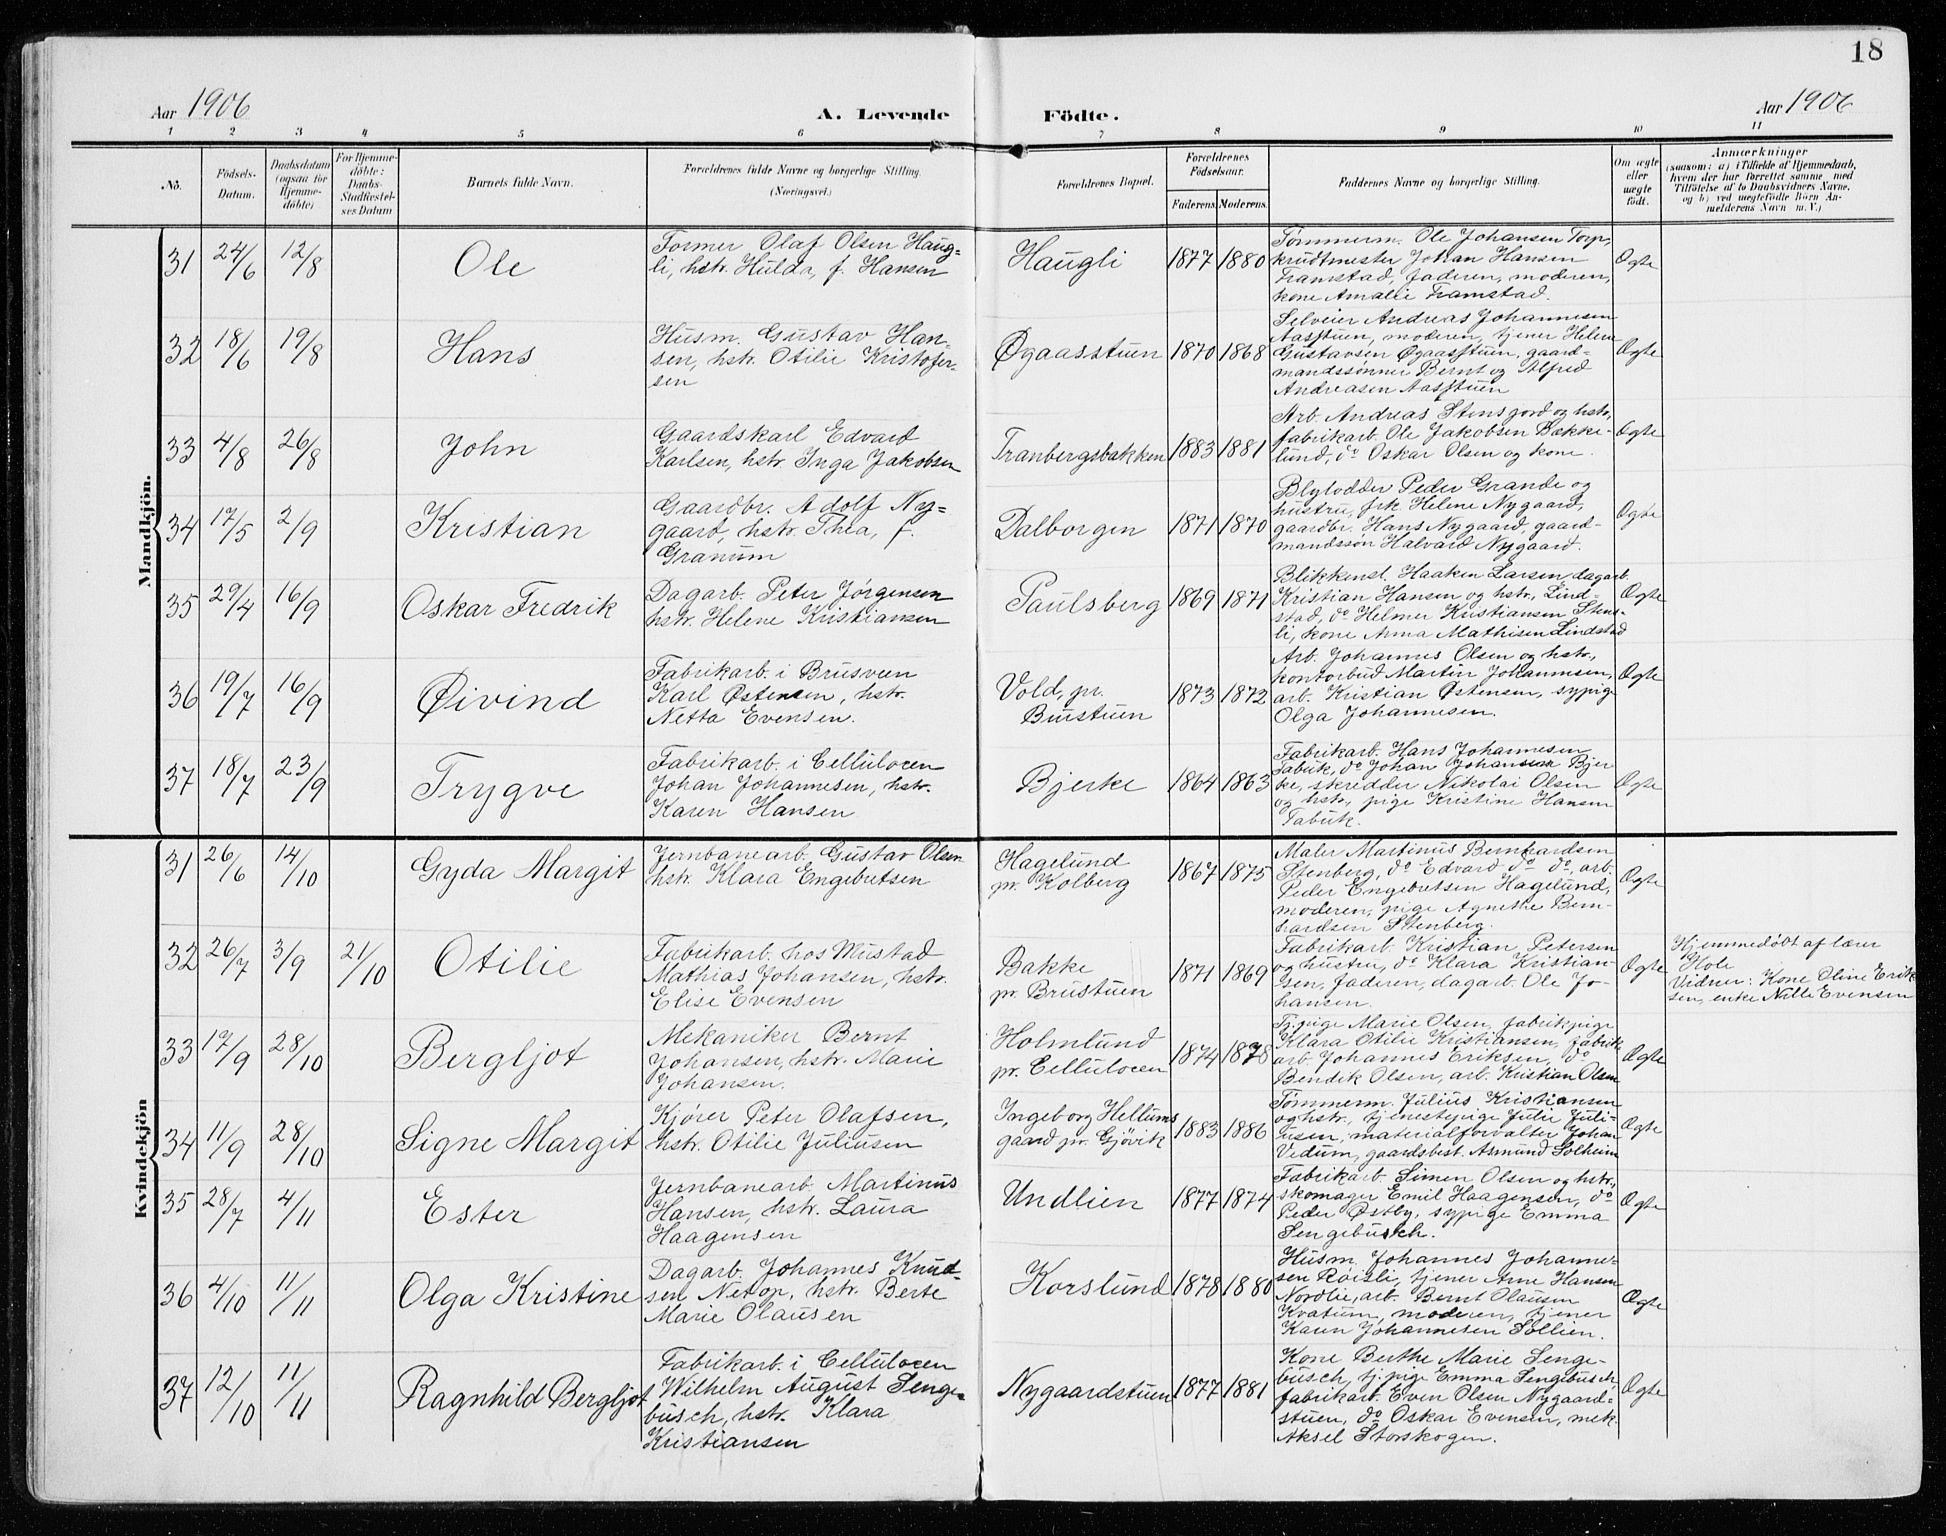 18
Aar 1906
A. Levende
Födte.
Aar 1906
1 2 3 4 5 6 7 8 9 10 11
No.
Födsels-
Datum.
Daabsdatum
(ogsaa for
Hjemme-
døbte)
For Hjemme-
döbte:
Daabs-
Stadfæstel-
ses Datum
Barnets fulde Navn.
Forældrenes fulde Navne og borgerlige Stilling.
(Næringsvei.)
Forældrenes Bopæl.
Forældrenes
Födselsaar.
Faderens. Moderens.
Faddernes Navne og borgerlige Stilling.
Om ægte
eller
uægte
födt.
Anmærkninger
(saasom: a) i Tilfælde af Hjemmedaab,
hvem der har forrettet samme med
Tilföielse af to Daabsvidners Navne,
og b) ved uægtefödte Börn An-
melderens Navn m. V.)
Mandkjön.
31 24/6 12/8 Ole
Former Olaf Olsen Haug-
li, hstr. Hulda, f. Hansen
Haugli 1877 1880
Tømmerm. Ole Johansen Torp,
krudtmester Johan Hansen
Framstad, faderen, moderen,
kone Amalie Framstad.
Ægte
32 18/6 19/8 Hans
Husm. Gustav Han-
sen, hstr. Otilie Kristofer-
sen
Øgaasstuen 1870 1868
Selveier Andreas Johannesen
Aasstuen, moderen, tjener Helene
Gustavsen Øgaasstuen, gaard-
mandssønner Bernt og Alfred
Andreasen Aasstuen
Ægte
33 4/8 26/8 John
Gaardskarl Edvard
Karlsen, hstr. Inga Jakobsen
Tranbergsbakken 1883 1881
Arb. Andreas Stensjord og hstr.,
fabrikarb. Ole Jakobsen Bakke-
lund, do Oskar Olsen og kone.
Ægte
34 17/5 2/9 Kristian
Gaardbr. Adolf Ny-
gaard, hstr. Thea, f.
Granum
Dalborgen 1871 1870
Blylodder Peder Grande og
hustru, frk. Helene Nygaard,
gaardbr. Hans Nygaard, gaard-
mandssøn Halvard Nygaard.
Ægte
35 29/4 16/9 Oskar Fredrik
Dagarb. Peter Jørgensen
hstr. Helene Kristiansen
Paulsberg 1869 1871
Blikkensl. Haaken Larsen, dagarb.
Kristian Hansen og hstr., Lind-
stad, do Helmer Kristiansen Stens-
li, kone Anna Mathisen Lindstad
Ægte
36 19/7 16/9 Øivind
Fabrikarb. i Brusveen
Karl Østensen, hstr.
Netta Evensen.
Vold, pr.
Brustuen
1873 1872
Arb. Johannes Olsen og hstr.,
kontorbud Martin Johannesen,
arb. Kristian Østensen, sypige
Olga Johannesen.
Ægte
37 18/7 23/9 Trygve
Fabrikarb. i Cellulocen
Johan Johannesen, hstr.
Karen Hansen
Bjerke 1864 1863
Fabrikarb. Hans Johannesen
Fabrik, do Johan Johansen Bjer
ke, skredder Nikolai Olsen
og hstr., pige Kristine Hansen
Fabrik.
Ægte
Kvindekjön
31 26/6 14/10 Gyda Margit
Jernbanearb. Gustav Olsen
hstr. Klara Engebretsen
Hagelund
pr. Kolberg
1867 1875
Maler Martinus Bernhardsen
Stenberg, do Edvard do do, arb.
Peder Engebretsen Hagelund,
moderen, pige Agnethe Bern-
hardsen Stenberg.
Ægte
32 26/7 3/9 21/10 Otilie
Fabrikarb. hos Mustad
Mathias Johansen, hstr.
Elise Evensen
Bakke
pr. Brustuen
1871 1869
Fabrikarb. Kristian Petersen
og hustru, do Klara Kristian-
sen, faderen, dagarb. Ole Jo-
hansen.
Ægte
Hjemmedøbt af lærer
Hole
Vidner: Kone Oline Erik
sen, enke Nilli Evensen
33 17/9 28/10 Bergljot
Mekaniker Bernt
Johansen, hstr. Marie
Johansen.
Holmlund
pr. Cellulocen
1874 1878
Tj.pige Marie Olsen, fabrikpige
Klara Otilie Kristiansen, fabrik
arb. Johannes Eriksen, do
Bendik Olsen, arb. Kristian Olsen
Ægte
34 11/9 28/10 Signe Margit
Kjører Peter Olafsen,
hstr. Otilie Juliusen
Ingeborg Hellums
gaard pr. Gjøvik
1883 1886
Tømmerm. Julius Kristiansen
og hstr., tjenestepige Julie Juli-
usen, materialforvalter Johan
Vedum, gaardsbest. Asmund Solheim
Ægte
35 28/7 4/11 Ester
Jernbanearb. Martinus
Hansen, hstr. Laura
Haagensen
Undlien 1877 1874
Fabrikarb. Simen Olsen og hstr.,
skomager Emil Haagensen, do
Peder Østby, sypige Emma
Sengebusch.
Ægte
36 4/10 11/11 Olga Kristine
Dagarb. Johannes Knud-
sen Netop, hstr. Berte
Marie Olausen
Korslund 1878 1880
Husm. Johannes Johanne-
sen Røisli, tjener Arne Hansen
Nordlie, arb. Bernt Olausen
Kvatum, moderen, tjener
Karen Johannesen Sollien.
Ægte
37 12/10 11/11 Ragnhild Bergljot
Fabrikarb. i Cellulocen
Wilhelm August Senge-
busch, hstr. Klara
Kristiansen
Nygaardstuen 1877 1881
Kone Berthe Marie Senge-
busch, tj.pige Emma Sengebusch,
fabrikarb. Even Olsen Nygaard-
stuen, do Oskar Evensen, mek.
Aksel Storskogen.
Ægte